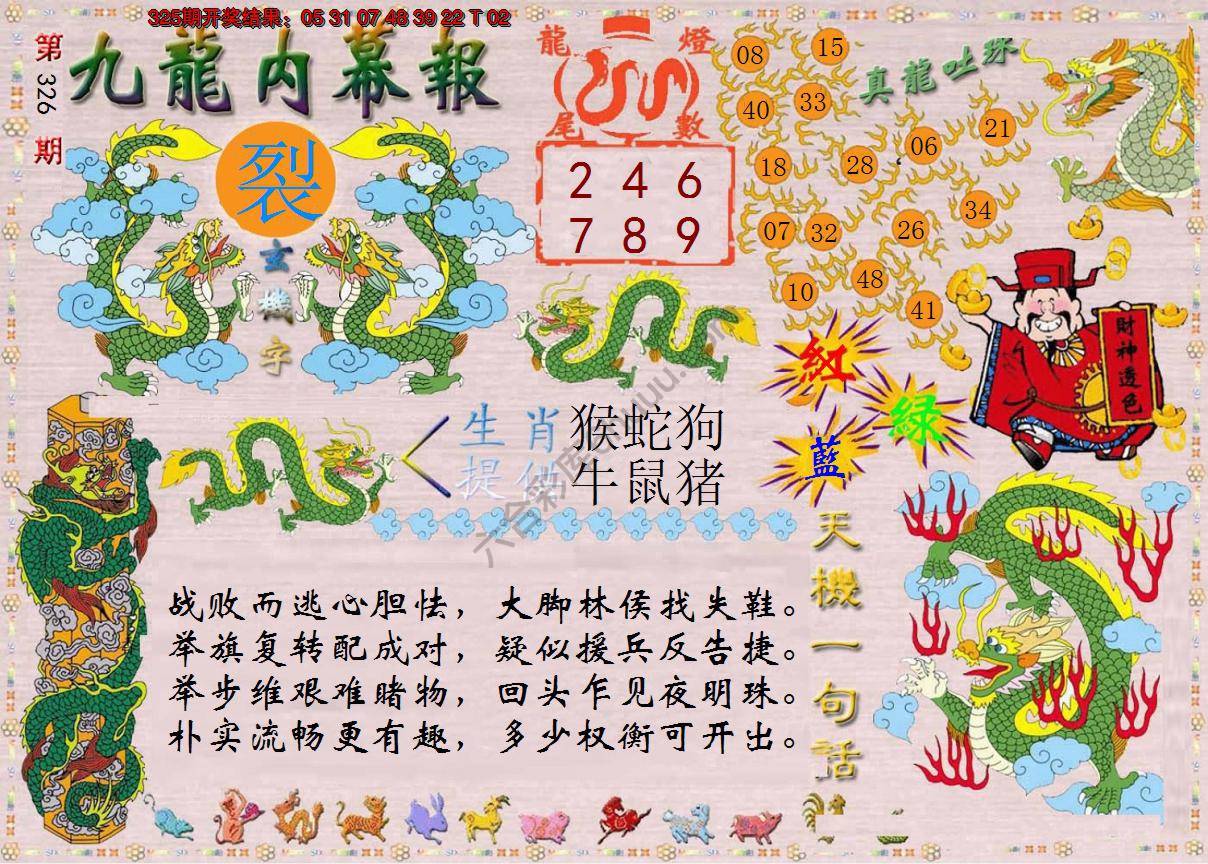 325期开奖结果：05 31 07 48 39 22 T 02
第326期
九龍内幕報
裂
玄機字
龍 燈
尾 數
2 4 6
7 8 9
真龍吐珠
08 15
40 33
18 28 06 21
07 32 26 34
10 48 41
財神透色
紅
綠
藍
生肖 猴蛇狗
提供 牛鼠猪
天機一句话
战败而逃心胆怯，大脚林侯找失鞋。
举旗复转配成对，疑似援兵反告捷。
举步维艰难睹物，回头乍见夜明珠。
朴实流畅更有趣，多少权衡可开出。